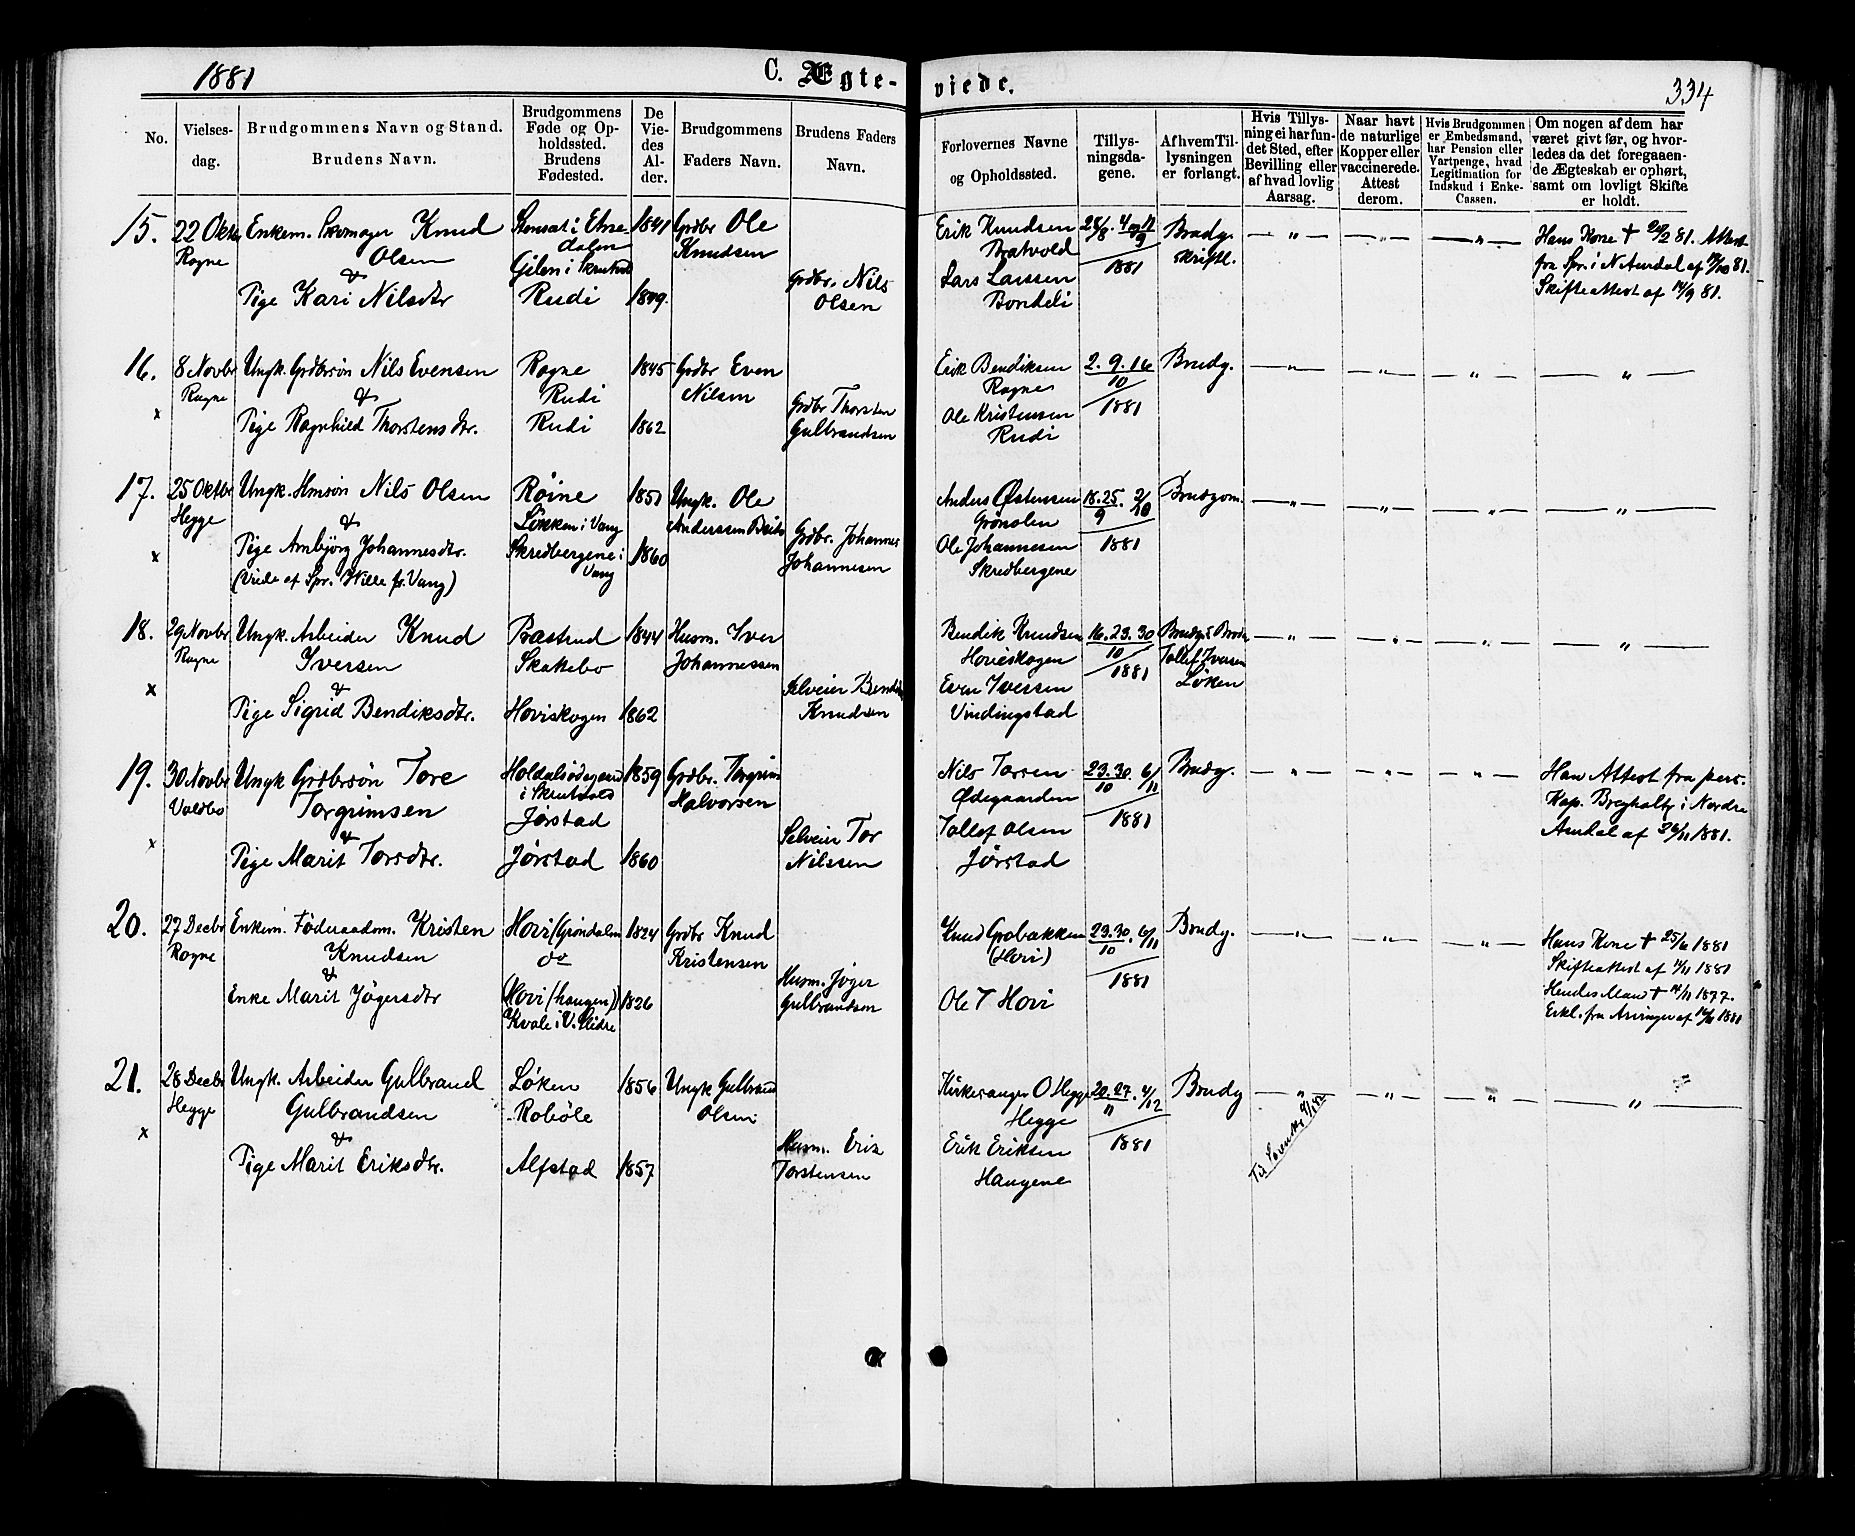 1881
C. Ægte-
viede.
334
No.
Vielses-
dag.
Brudgommens Navn og Stand.
Brudens Navn.
Brudgommens
Føde og Op-
holdssted.
Brudens
Fødested.
De
Vie-
des
Al-
der.
Brudgommens
Faders Navn.
Brudens Faders
Navn.
Forlovernes Navne
og Opholdssted.
Tillys-
ningsda-
gene.
Af hvem Til-
lysningen
er forlangt.
Hvis Tillys-
ning ei har fun-
det Sted, efter
Bevilling eller
af hvad lovlig
Aarsag.
Naar havt
de naturlige
Kopper eller
vaccinerede.
Attest
derom.
Hvis Brudgommen
er Embedsmand,
har Pension eller
Vartpenge, hvad
Legitimation for
Indskud i Enke-
Cassen.
Om nogen af dem har
været givt før, og hvor-
ledes da det foregaaen-
de Ægteskab er ophørt,
samt om lovligt Skifte
er holdt.
15.
22 Oktbr
Rogne
Enkem. Skomager Knud
Olsen
&
Pige Kari Nilsdtr
i Etne-
dalen
i Skrutvold
Rudi
1841
1849.
Grdbr Ole
Knudsen
Grdbr. Nils
Olsen
Erik Knudsen
Bratvold
Lars Larssen
Bondeli
28/8. 4 og 11/9
1881
Brudg.
skriftl.
Hans Kone † 81. Attest
fra Spr. i N Aurdal af 81.
Skifteattest af 14/9 81.
16.
8 Novbr
Rogne
x
Ungk. Grdbrsön Nils Evensen
&
Pige Ragnhild Thorstensdtr.
Rogne
Rudi
Rudi
1845
1862
Grdbr Even
Nilsen
Grdbr Thorsten
Gulbrandsen
Erik Bendiksen
Rogne
Ole Kristensen
Rudi
2. 9. 16
10
1881
Brudg.
17.
25 Oktbr
Hegge
x
Ungk. Hmsön Nils Olsen
&
Pige Ambjörg Johannesdtr.
(Viede af Spr. Wille fr. Vang)
Röine
Løkken i Vang
Skredbergene i
Vang
1851
1860
Ungk. Ole
Anderssen
Grdbr. Johannes
Johannesen
Anders Østensen
Grønolen
Ole Johannesen
Skredbergene
18. 25. 2/10
9
1881
Brudgom.
18.
29 Novbr
Rogne
x
Ungk. Arbeider Knud
Iversen
&
Pige Sigrid Bendiksdtr.
Bastrud
Skakebo
Hoviskogen
1844
1862
Husm. Iver
Johannessen
Selveier Bendik
Knudsen
Bendik Knudsen
Hoviskogen
Even Iversen
Vindingstad
16. 23. 30
10
1881
Brudg.s Broder
Tollef Iversen
Löken
19.
30 Novbr
Volbo
x
Ungk Grdbrsön Tore
Torgrimsen
&
Pige Marit Torsdtr.
i Skrutvold
Jørstad
Jørstad
1859
1860
Grdbr. Torgrim
Halvorsen
Selveier Tor
Nilssen
Nils Torsen
Ødegaarden
Tollef Olsen
Jørstad
23. 30. 6/11
10
1881
Brudg.
Han Attest fra pers.
Kap. i Nordre
Aurdal af 1881.
20.
27 Decbr
Rogne
Enkem. Föderaadsm. Kristen
Knudsen
&
Enke Marit Jögersdtr
Hovi (Gröndalen
do
Hovi (haugen)
Kvale i V. Slidre
1824
1826
Grdbr Knud
Kristensen
Husm. Jöger
Gulbrandsen
Knud Grobakken
(Hovi)
Ole T Hovi
23. 30. 6/11
10
1881
Brudg.
Hans Kone † 1881
Skifteattest af 1881
Hendes Mand † 1877.
Erkl. fra Arvinger af 1881
21.
28 Decbr
Hegge
x
Ungk. Arbeider Gulbrand
Gulbrandsen
&
Pige Marit Eriksdtr.
Løken
Robøle
Alfstad
1856
1857
Ungk Gulbrand
Olsen
Husm. Erik
Torstensen
Kirkesanger O Hegge
Hegge
Erik Eriksen
Haugene
20. 27. 4/12
11
1881
Brudg